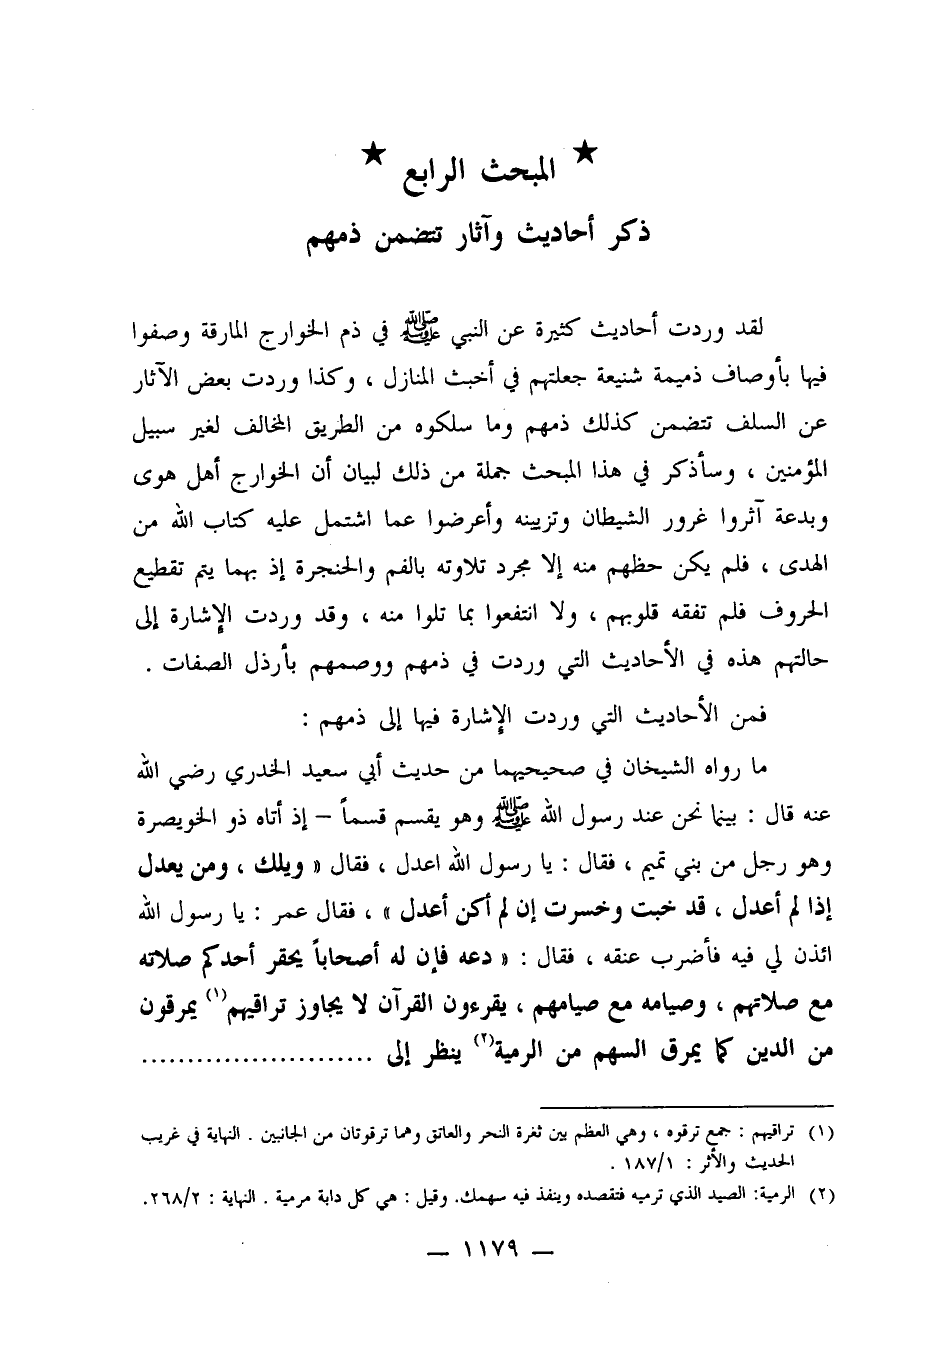 ★ المبحث الرابع ★
ذكر أحاديث وآثار تتضمن ذمهم
لقد وردت أحاديث كثيرة عن النبي ﷺ في ذم الخوارج المارقة وصفوا
فيها بأوصاف ذميمة شنيعة جعلتهم في أخبث المنازل ، وكذا وردت بعض الآثار
عن السلف تتضمن كذلك ذمهم وما سلكوه من الطريق المخالف لغير سبيل
المؤمنين ، وسأذكر في هذا المبحث جملة من ذلك لبيان أن الخوارج أهل هوى
وبدعة آثروا غرور الشيطان وتزيينه وأعرضوا عما اشتمل عليه كتاب الله من
الهدى ، فلم يكن حظهم منه إلا مجرد تلاوته بالفم والحنجرة إذ بهما يتم تقطيع
الحروف فلم تفقه قلوبهم ، ولا انتفعوا بما تلوا منه ، وقد وردت الإشارة إلى
حالتهم هذه في الأحاديث التي وردت في ذمهم ووصمهم بأرذل الصفات .
فمن الأحاديث التي وردت الإشارة فيها إلى ذمهم :
ما رواه الشيخان في صحيحيهما من حديث أبي سعيد الخدري رضي الله
عنه قال : بينما نحن عند رسول الله ﷺ وهو يقسم قسماً – إذ أتاه ذو الخويصرة
وهو رجل من بني تميم ، فقال : يا رسول الله اعدل ، فقال « ويلك ، ومن يعدل
إذا لم أعدل ، قد خبت وخسرت إن لم أكن أعدل » ، فقال عمر : يا رسول الله
ائذن لي فيه فأضرب عنقه ، فقال : « دعه فإن له أصحاباً يحقر أحدكم صلاته
مع صلاتهم ، وصيامه مع صيامهم ، يقرءون القرآن لا يجاوز تراقيهم(١) يمرقون
من الدين كما يمرق السهم من الرمية(٢) ينظر إلى .........................
(١) تراقيهم : جمع ترقوه ، وهي العظم بين ثغرة النحر والعاتق وهما ترقوتان من الجانبين . النهاية في غريب
الحديث والأثر : ١٨٧/١ .
(٢) الرمية: الصيد الذي ترميه فتقصده وينفذ فيه سهمك. وقيل : هي كل دابة مرمية . النهاية : ٢٦٨/٢.
— ١١٧٩ —